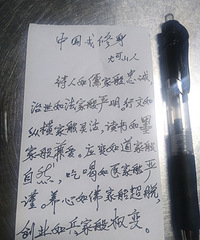 中国式修身
待人如儒家般忠诚
治业如法家般严明，行文如
纵横家般灵活，读书如墨
家般兼爱。应变如道家般
自然，吃喝如医家般严
谨，养心如佛家般超脱，
创业如兵家般权变。